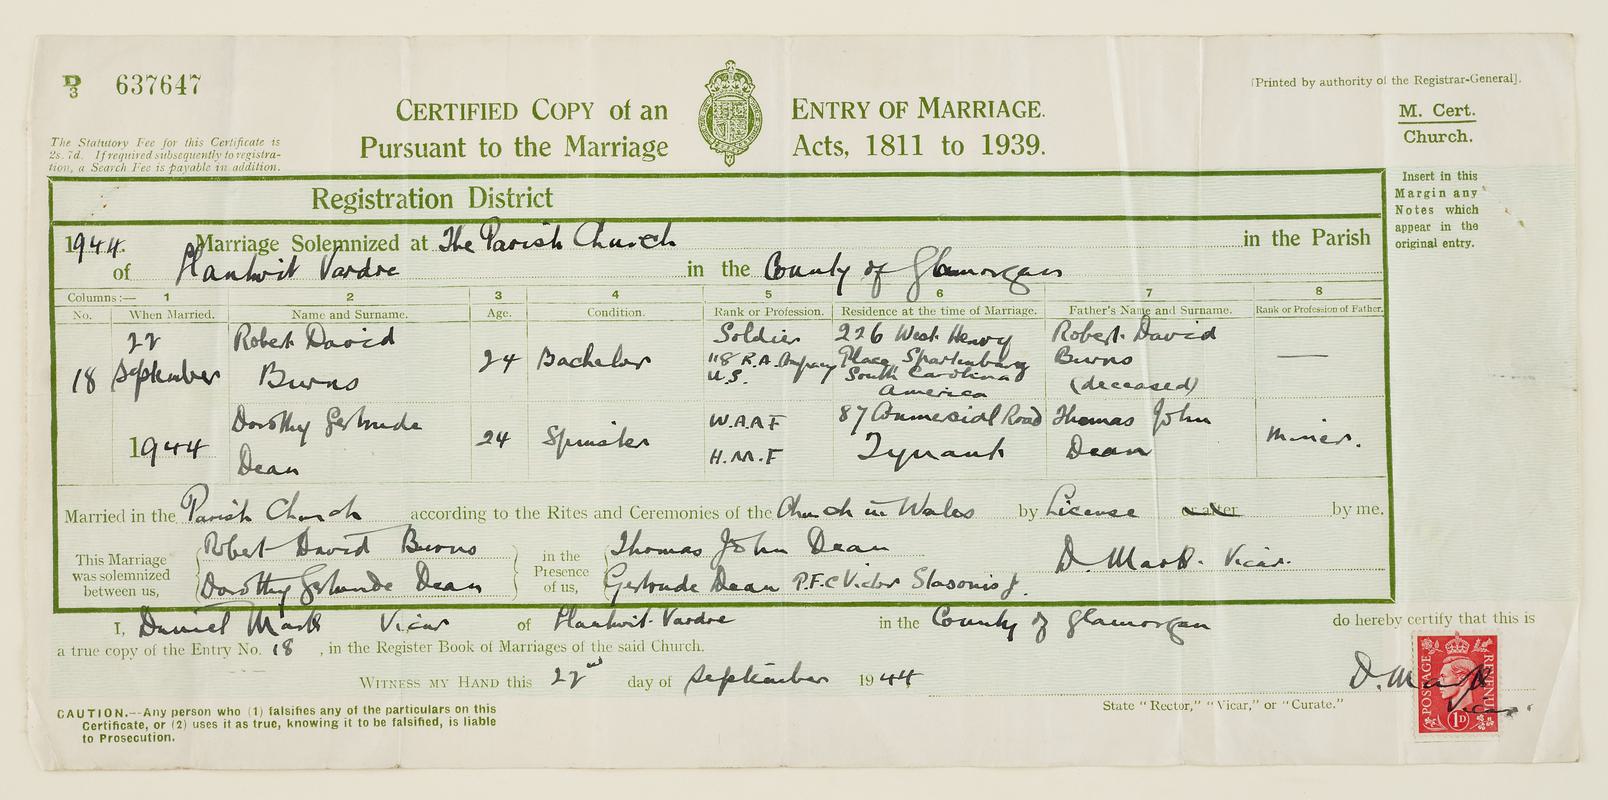 D/3 637647
[Printed by authority of the Registrar-General].
CERTIFIED COPY of an ENTRY OF MARRIAGE.
Pursuant to the Marriage Acts, 1811 to 1939.
M. Cert.
Church.
The Statutory Fee for this Certificate is
2s. 7d. If required subsequently to registra-
tion, a Search Fee is payable in addition.
Insert in this
Margin any
Notes which
appear in the
original entry.
Registration District
1944. Marriage Solemnized at The Parish Church in the Parish
of Llantwit Vardre in the County of Glamorgan
Columns:— 1 2 3 4 5 6 7 8
No. When Married. Name and Surname. Age. Condition. Rank or Profession. Residence at the time of Marriage. Father's Name and Surname. Rank or Profession of Father.
18
22
September
1944
Robert David
Burns
24
Bachelor
Soldier
118 R.A.
U.S.
226 West Henry
Place, Spartenburg
South Carolina
America
Robert David
Burns
(deceased)
—
Dorothy Gertrude
Dean
24
Spinster
W.A.A.F
H.M.F
87 Commercial Road
Tynant
Thomas John
Dean
Miner.
Married in the Parish Church according to the Rites and Ceremonies of the Church in Wales by License or after by me.
This Marriage
was solemnized
between us,
Robert David Burns
Dorothy Gertrude Dean
in the
Presence
of us,
Thomas John Dean
Gertrude Dean P.F.C Victor Slasonis Jr.
D. Mark. Vicar.
I, Daniel Mark Vicar of Llantwit Vardre in the County of Glamorgan do hereby certify that this is
a true copy of the Entry No. 18, in the Register Book of Marriages of the said Church.
WITNESS MY HAND this 22nd day of September 1944
D. Mark
Vicar.
State "Rector," "Vicar," or "Curate."
POSTAGE REVENUE
1D
CAUTION.—Any person who (1) falsifies any of the particulars on this
Certificate, or (2) uses it as true, knowing it to be falsified, is liable
to Prosecution.